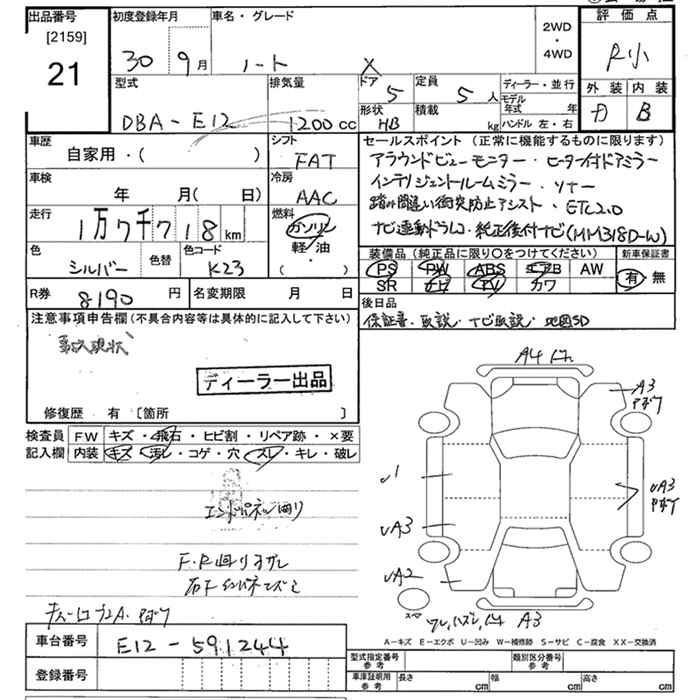 出品番号
[2159]
21
初度登録年月
30年 9月
車名・グレード
ノート X
2WD
・
4WD
評価点
R小
外装 内装
B
型式
DBA-E12
排気量
1200cc
ドア 5
定員 5人
形状 HB
積載 kg
ディーラー・並行
モデル年式 年
ハンドル 左・右
車歴
自家用・( )
シフト
FAT
車検
年 月( 日)
冷房
AAC
走行
1万7千718km
燃料
ガソリン
軽・油
・( )
色
シルバー
色替
色コード
K23
R券
8190円
名変期限 月 日
セールスポイント(正常に機能するものに限ります)
アラウンドビューモニター・ヒーター付ドアミラー
インテリジェントルームミラー・ソナー
踏み間違い衝突防止アシスト・ETC2.0
ナビ連動ドラレコ・純正後付ナビ(MM318D-W)
装備品(純正品に限り○をつけてください)
新車保証書
PS PW ABS エアB AW
SR ナビ TV カワ
有・無
後日品
保証書・取説・ナビ取説・地図SD
注意事項申告欄(不具合内容等は具体的に記入して下さい)
現状
ディーラー出品
修復歴 有 [箇所 ]
検査員
記入欄
FW キズ・飛石・ヒビ割・リペア跡・×要
内装 キズ・汚レ・コゲ・穴・スレ・キレ・破レ
A4
A3
U1
UA3
UA3
UA2
A3
A-キズ E-エクボ U-凹み W-補修跡 S-サビ C-腐食 XX-交換済
車台番号
E12-591244
登録番号
型式指定番号
参考
類別区分番号
参考
車庫証明用
参考
長さ cm 幅 cm 高さ cm